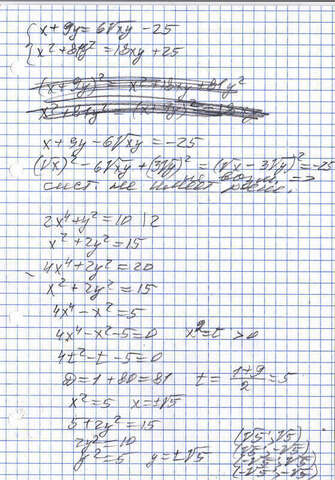 { x + 9y = 6√xy - 25
{ x² + 81y² = 18xy + 25
(x + 9y)² = x² + 18xy + 81y²
x + 9y - 6√xy = -25
(√x)² - 6√xy + (3√y)² = (√x - 3√y)² = -25
сист. не имеет реш.
2x⁴ + y² = 10 |2
x² + 2y² = 15
4x⁴ + 2y² = 20
x² + 2y² = 15
4x⁴ - x² = 5
4x⁴ - x² - 5 = 0 x² = t > 0
4t² - t - 5 = 0
D = 1 + 80 = 81 t = (1+9)/2 = 5
x² = 5 x = ±√5
5 + 2y² = 15
2y² = 10
y² = 5 y = ±√5
(√5; √5)
(√5; -√5)
(-√5; √5)
(-√5; -√5)